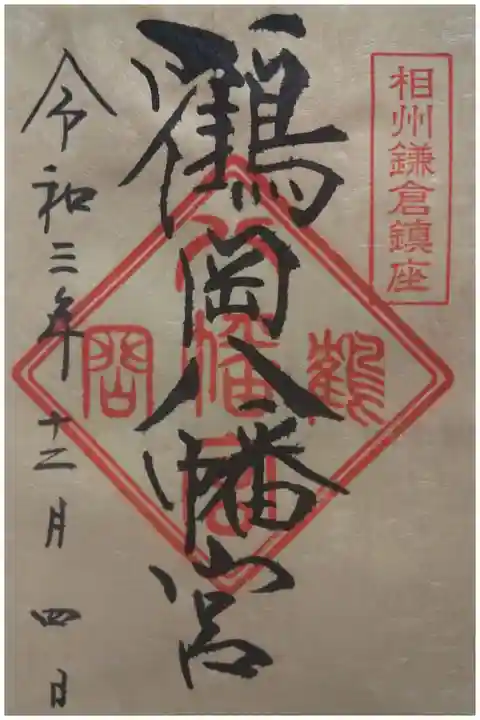 相州鎌倉鎮座
鶴岡八幡宮
鶴
八幡宮
岡
令和三年十二月四日